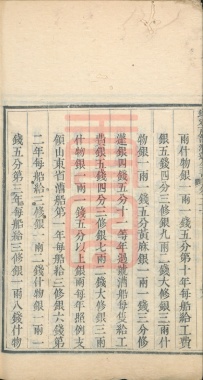 兩什物銀一兩一錢五分第十年每船給工費
銀五錢四分三修銀九兩二錢大修銀三兩什
物銀一兩一錢五分黃麻銀一兩一錢三分修
艌銀四錢五分十一等年過號漕船每隻給工
費銀五錢四分三修銀七兩二錢大修銀三兩
什物銀一兩一錢五分以上銀兩每年照例支
領山東省漕船第一年每船給三修銀六錢第
二年每船給三修銀一兩二錢什物銀一兩一
錢五分第三年每船給三修銀一兩八錢什物